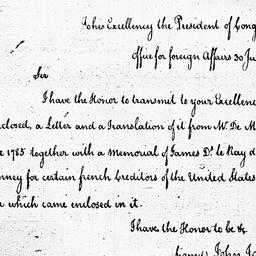 To his Excellency the President of Cong
Office for foreign Affairs 30 Ju
Sir
I have the Honor to transmit to your Excellenc
nclosed, a Letter and a Translation of it from Mr. De M
e 1785 together with a Memorial of James D. le Ray d
orney for certain french Creditors of the United States
which came enclosed in it.
I have the Honor to be &c.
signed John Ja